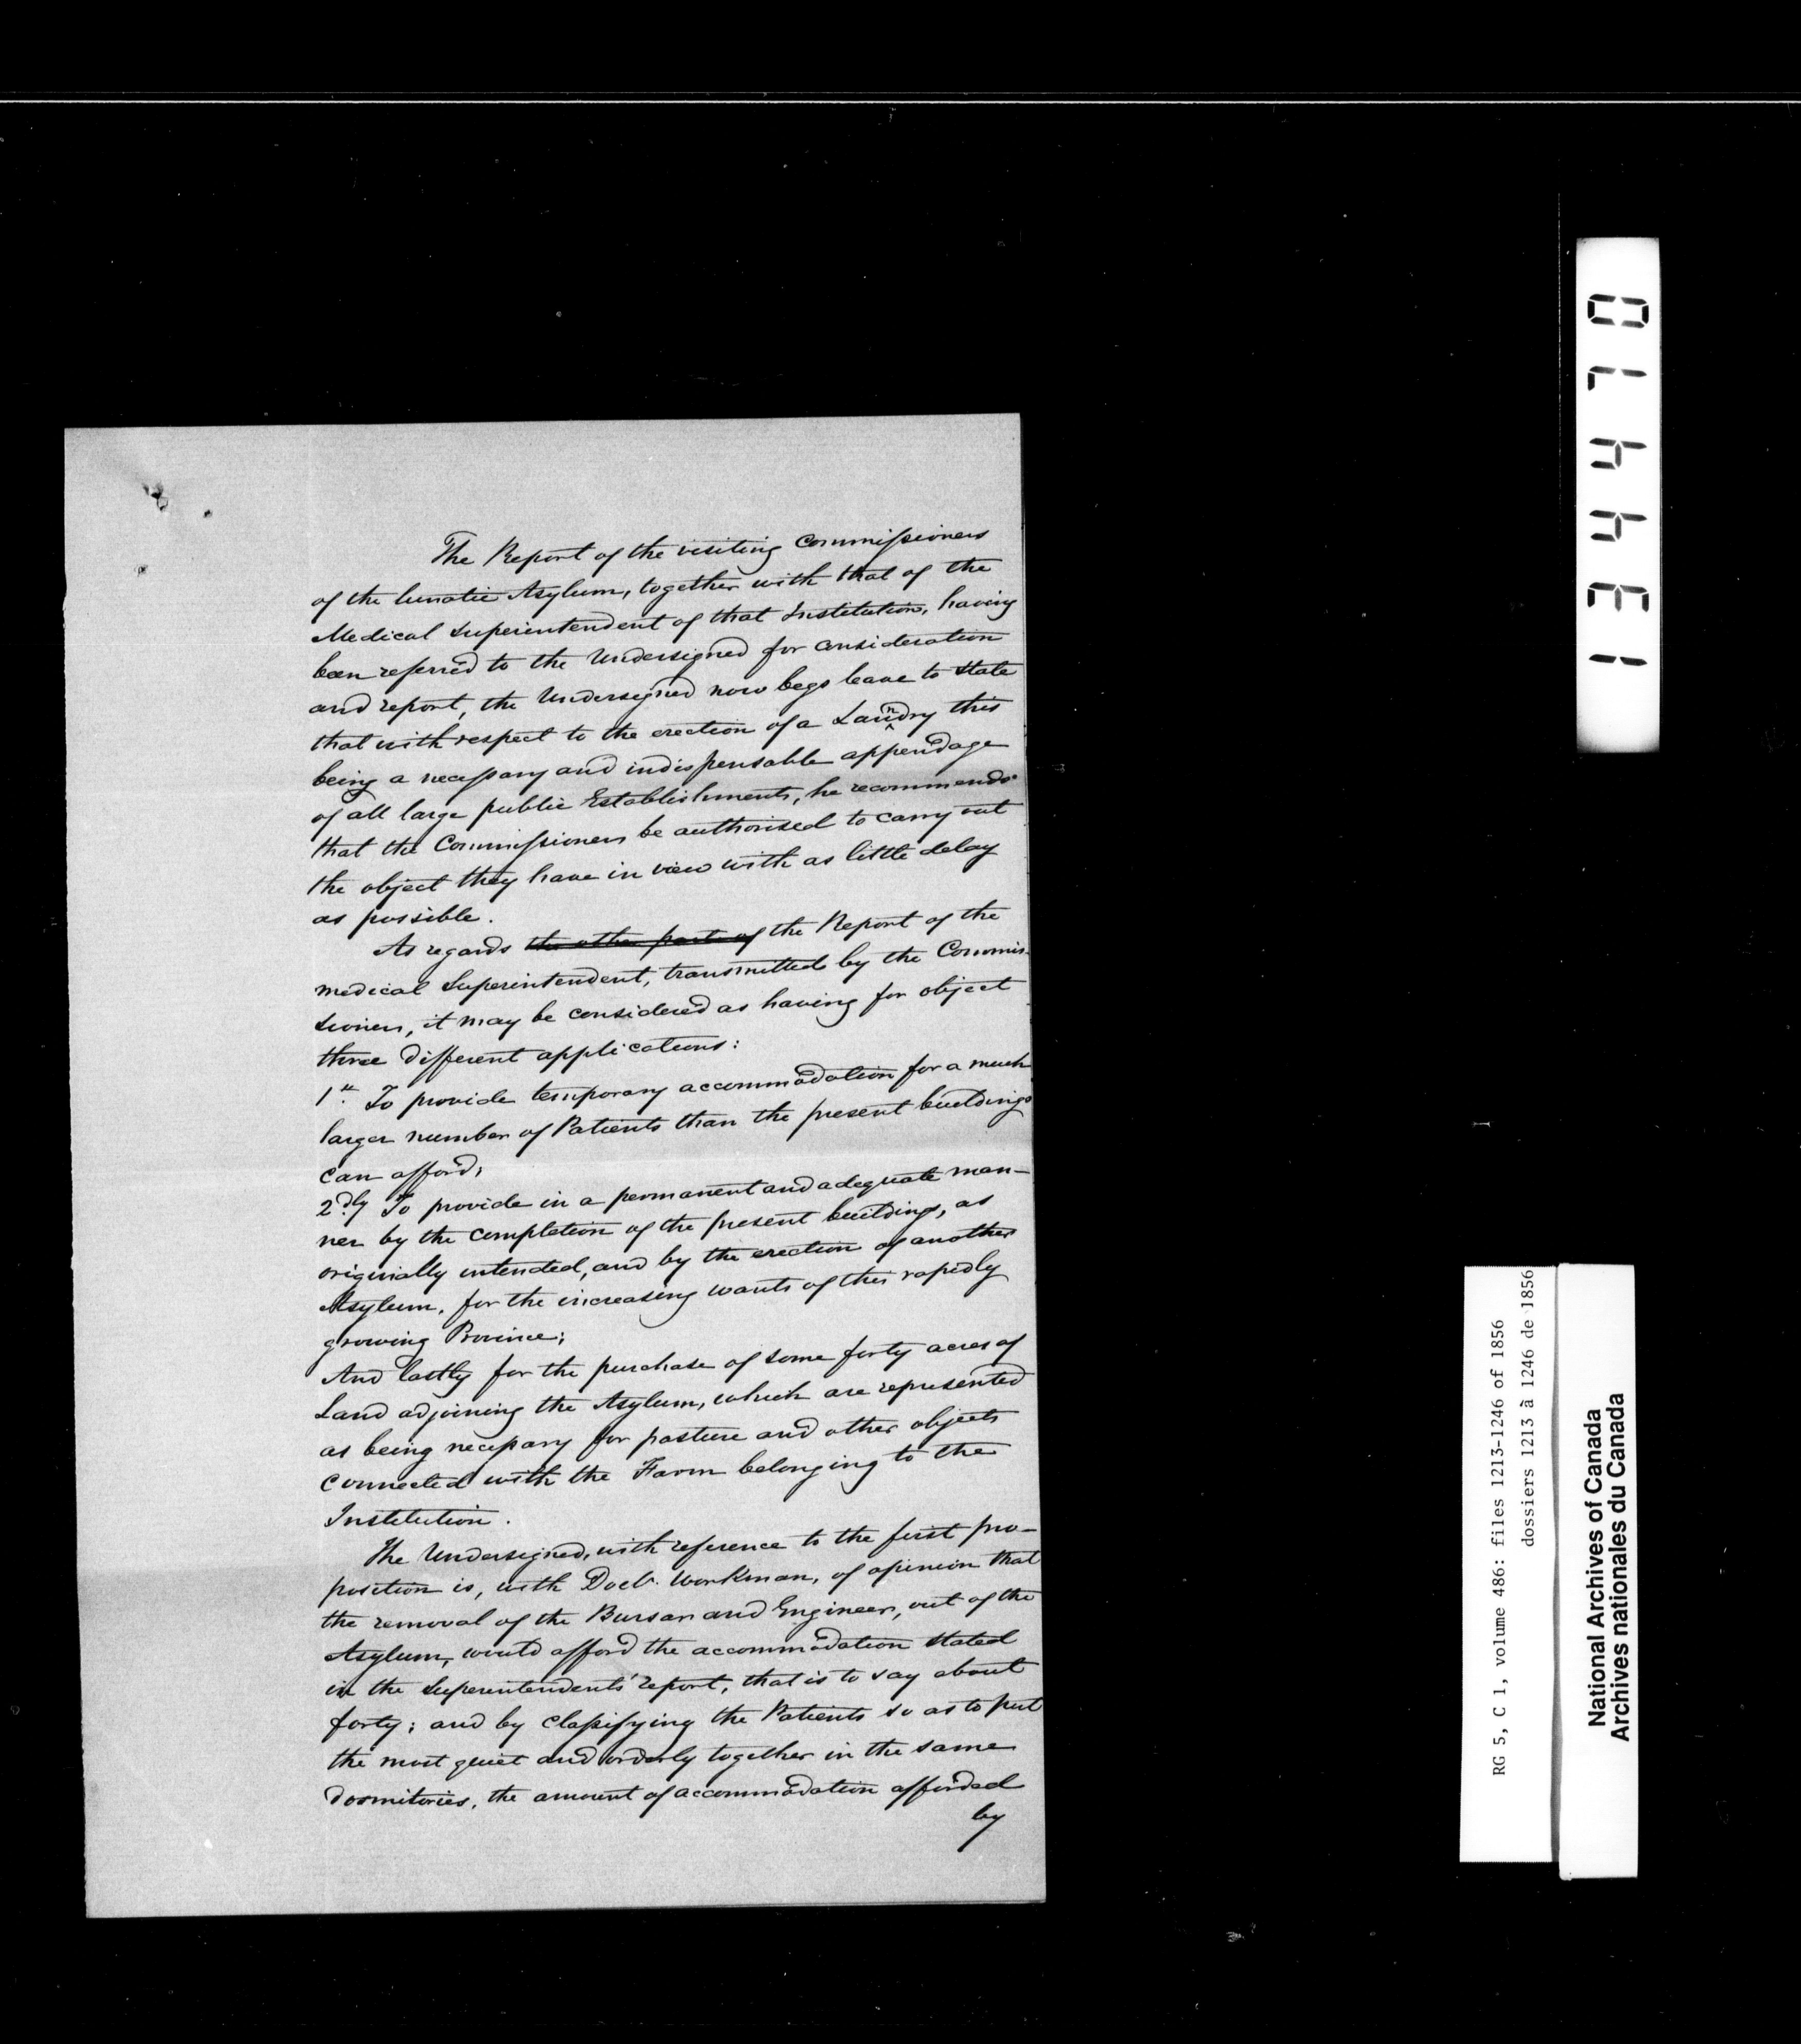 The Report of the visiting Commissioners
of the lunatic Asylum, together with that of the
Medical Superintendent of that Institution, having
been referred to the Undersigned for consideration
and report, the Undersigned now begs leave to state
that with respect to the erection of a Laundry this
being a necessary and indispensable appendage
of all large public Establishments, he recommends
that the Commissioners be authorised to carry out
the object they have in view with as little delay
as possible.
As regards the other parts of the Report of the
medical Superintendent, transmitted by the Commis-
sioners, it may be considered as having for object
three different applications:
1st. To provide temporary accommodation for a much
larger number of Patients than the present buildings
can afford;
2dly To provide in a permanent and adequate man-
ner by the completion of the present buildings, as
originally intended, and by the erection of another
Asylum, for the increasing wants of this rapidly
growing Province;
And lastly for the purchase of some forty acres of
Land adjoining the Asylum, which are represented
as being necessary for pasture and other objects
connected with the Farm belonging to the
Institution.
The Undersigned, with reference to the first pro-
position is, with Doctr. Workman, of opinion that
the removal of the Bursar and Engineer, out of the
Asylum, would afford the accommodation stated
in the Superintendents' report, that is to say about
forty; and by classifying the Patients so as to put
the most quiet and orderly together in the same
dormitories, the amount of accommodation afforded
by
013441
RG 5, C 1, volume 486: files 1213-1246 of 1856
dossiers 1213 à 1246 de 1856
National Archives of Canada
Archives nationales du Canada